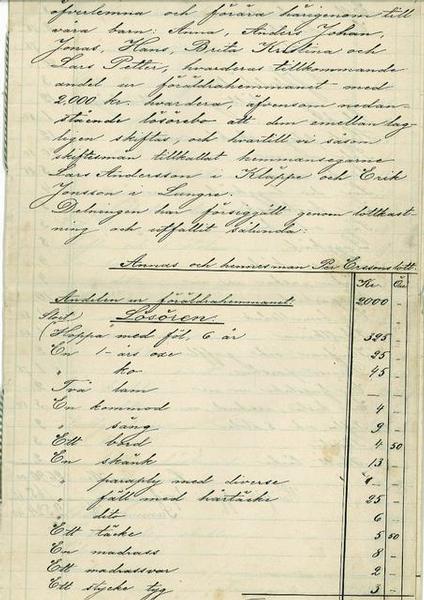 öfverlemna och förära härigenom till
våra barn: Anna, Anders Johan,
Jonas, Hans, Brita Kristina och
Lars Petter, hvarderas tillkommande
andel ur föräldrahemmanet med
2,000 kr. hvardera, äfvensom nedan-
stående lösörebo att dem emellan lag-
ligen skiftas, och hvartill vi såsom
skiftesman tillkallat hemmansegarne
Lars Andersson i Kläppe och Erik
Jonsson i Lungre.
Delningen har försiggått genom lottkast-
ning och utfallit sålunda:
Annas och hennes man Per Erssons lott.
Kr. Öre
Andelen ur föräldrahemmanet. 2000 -
Lösören.
Hoppa med föl, 6 år 325 -
En 1-års oxe 25 -
" ko 45 -
Två lam - -
En kommod 4 -
" säng 9 -
Ett bord 4 50
En skänk 13 -
" paraply med diverse -
" fäll med hårtäcke 25 -
" dito 6 -
Ett täcke 5 50
En madrass 8 -
Ett madrassvar 2 -
Ett stycke tyg 3 -